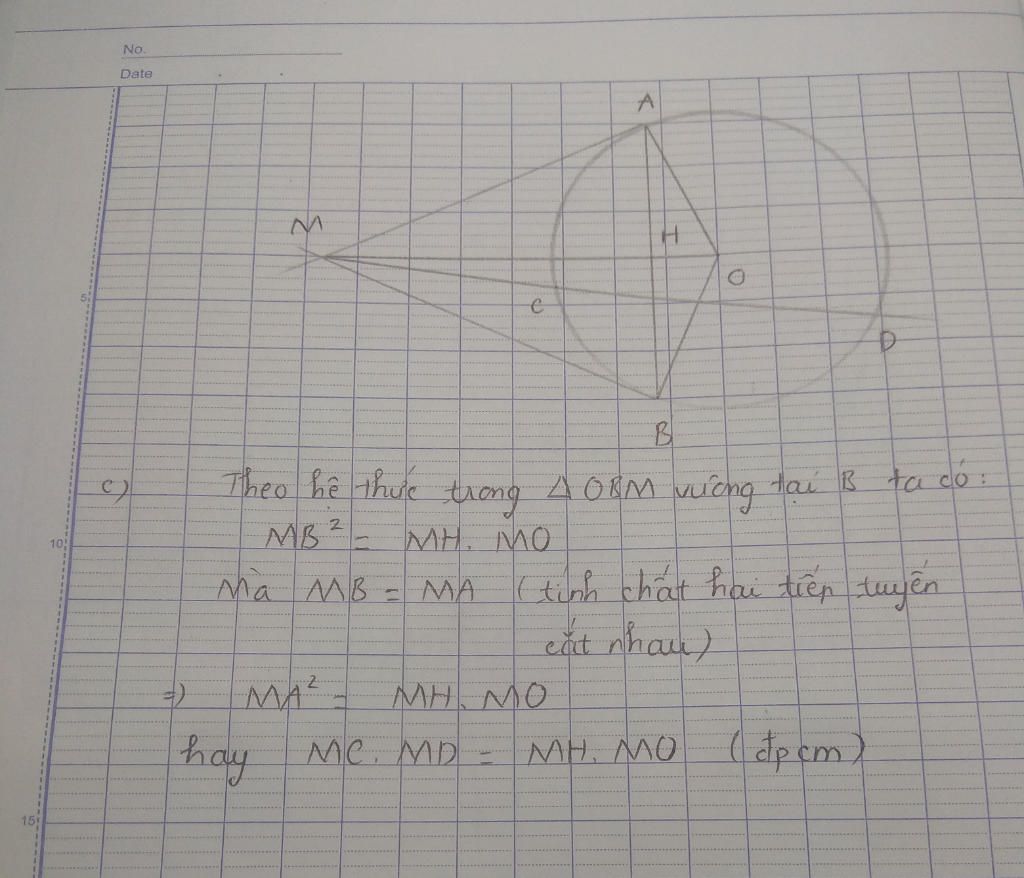 No.
Date
A
M
H
O
C
D
B
5
c) Theo hệ thức trong Δ OBM vuông tại B ta có:
10
MB² = MH. MO
Mà MB = MA (tính chất hai tiếp tuyến
cắt nhau)
=) MA² = MH. MO
hay MC. MD = MH. MO (đpcm)
15